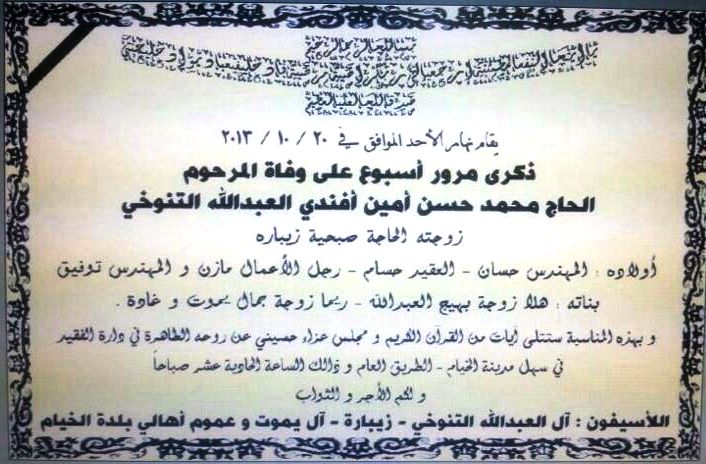 بسم الله الرحمن الرحيم
يقام نهار الأحد الموافق في ٢٠ / ١٠ / ٢٠١٣
ذكرى مرور أسبوع على وفاة المرحوم
الحاج محمد حسن أمين أفندي العبدالله التنوخي
زوجته الحاجة صبحية زيباره
أولاده : المهندس حسان - العقيد حسام - رجل الأعمال مازن و المهندس توفيق
بناته : هلا زوجة بهيج العبدالله - ريما زوجة جمال يموت و غادة .
و بهذه المناسبة ستتلى آيات من القرآن الكريم و مجلس عزاء حسيني عن روحه الطاهرة في دارة الفقيد
في سهل مدينة الخيام - الطريق العام و ذالك الساعة الحادية عشر صباحاً
و لكم الأجر و الثواب
اللأسيفون : آل العبدالله التنوخي - زيبارة - آل يموت و عموم أهالي بلدة الخيام